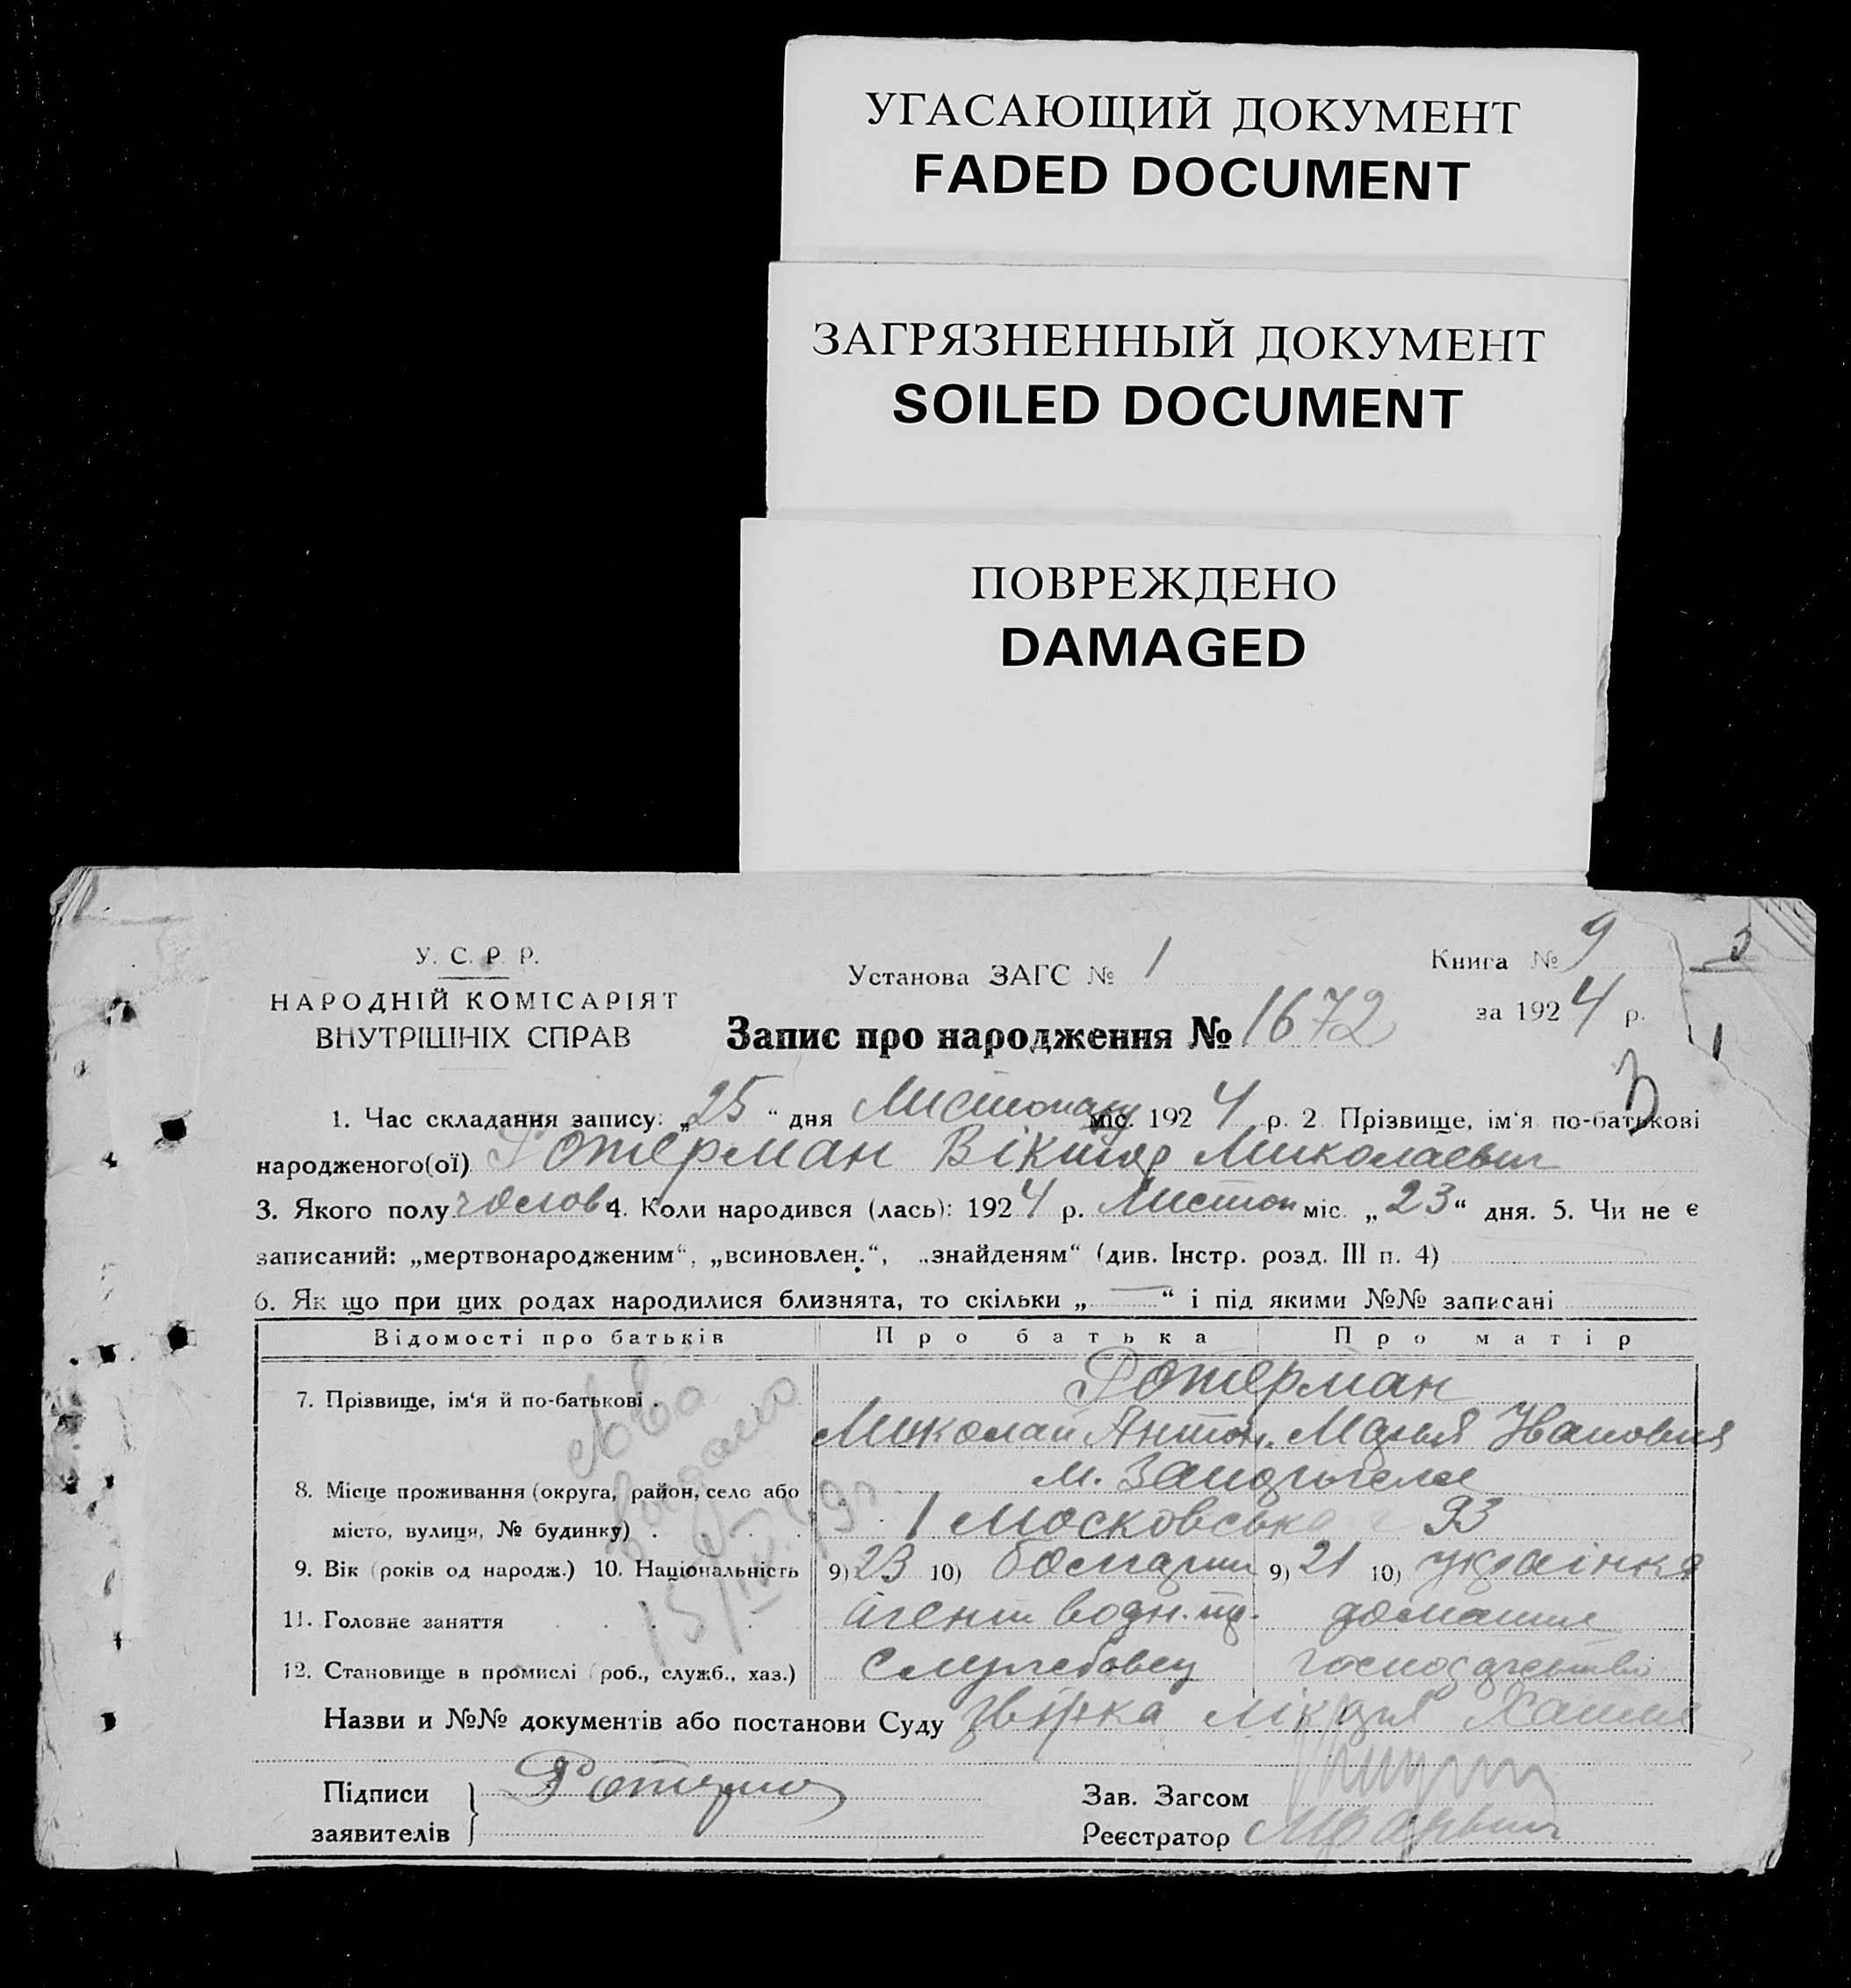 УГАСАЮЩИЙ ДОКУМЕНТ
FADED DOCUMENT
ЗАГРЯЗНЕННЫЙ ДОКУМЕНТ
SOILED DOCUMENT
ПОВРЕЖДЕНО
DAMAGED
У. С. Р. Р.
НАРОДНІЙ КОМІСАРІЯТ
ВНУТРІШНІХ СПРАВ
Установа ЗАГС № 1
Книга № 9
за 1924 р.
3
Запис про народження № 1672
1. Час складання запису: „25“ дня Листопаду міс. 1924 р. 2. Прізвище, ім‘я по-батькові
народженого(ої) Ротерман Віктор Миколаевич
3. Якого полу чолов 4. Коли народився (лась): 1924 р. Листоп міс. „23“ дня. 5. Чи не є
записаний: „мертвонародженим“, „всиновлен.“, „знайденям“ (див. Інстр. розд. III п. 4)
6. Як що при цих родах народилися близнята, то скільки „—“ і під якими №№ записані
Відомості про батьків Про батька Про матір
7. Прізвище, ім‘я й по-батькові . Ротерман
Миколай Антон. Марья Ивановна
8. Місце проживання (округа, район, село або м.
місто, вулиця, № будинку) . 1 Московська 93
9. Вік (років од народж.) 10. Національність 9) 23 10) болгарин 9) 21 10) українка
11. Головне заняття агент водн. домашне
12. Становище в промислі (роб., служб., хаз.) Службовец господарство
Назви и №№ документів або постанови Суду
Підписи
заявителів
Зав. Загсом
Реєстратор